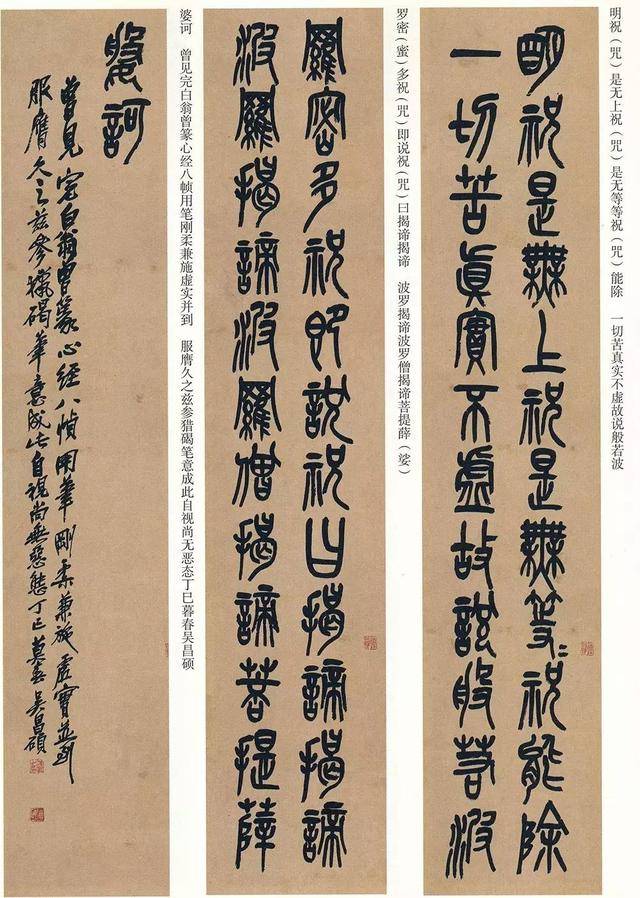 明祝（咒）是无上祝（咒）是无等等祝（咒）能除　一切苦真实不虚故说般若波
朙祝是無上祝是無等〻祝能除
一切苦真實不虛故說般若波
罗密（蜜）多祝（咒）即说祝（咒）曰揭谛揭谛　波罗揭谛波罗僧揭谛菩提薛（娑）
羅密多祝即說祝曰揭諦揭諦
波羅揭諦波羅僧揭諦菩提薛
婆诃　曾见完白翁曾篆心经八帧用笔刚柔兼施虚实并到　服膺久之兹参猎碣笔意成此自视尚无恶态丁巳暮春吴昌硕
婆訶
曾見完白翁曾篆心經八幀用筆剛柔兼施虛實並到
服膺久之茲參獵碣筆意成此自視尚無惡態丁巳莫春吳昌碩